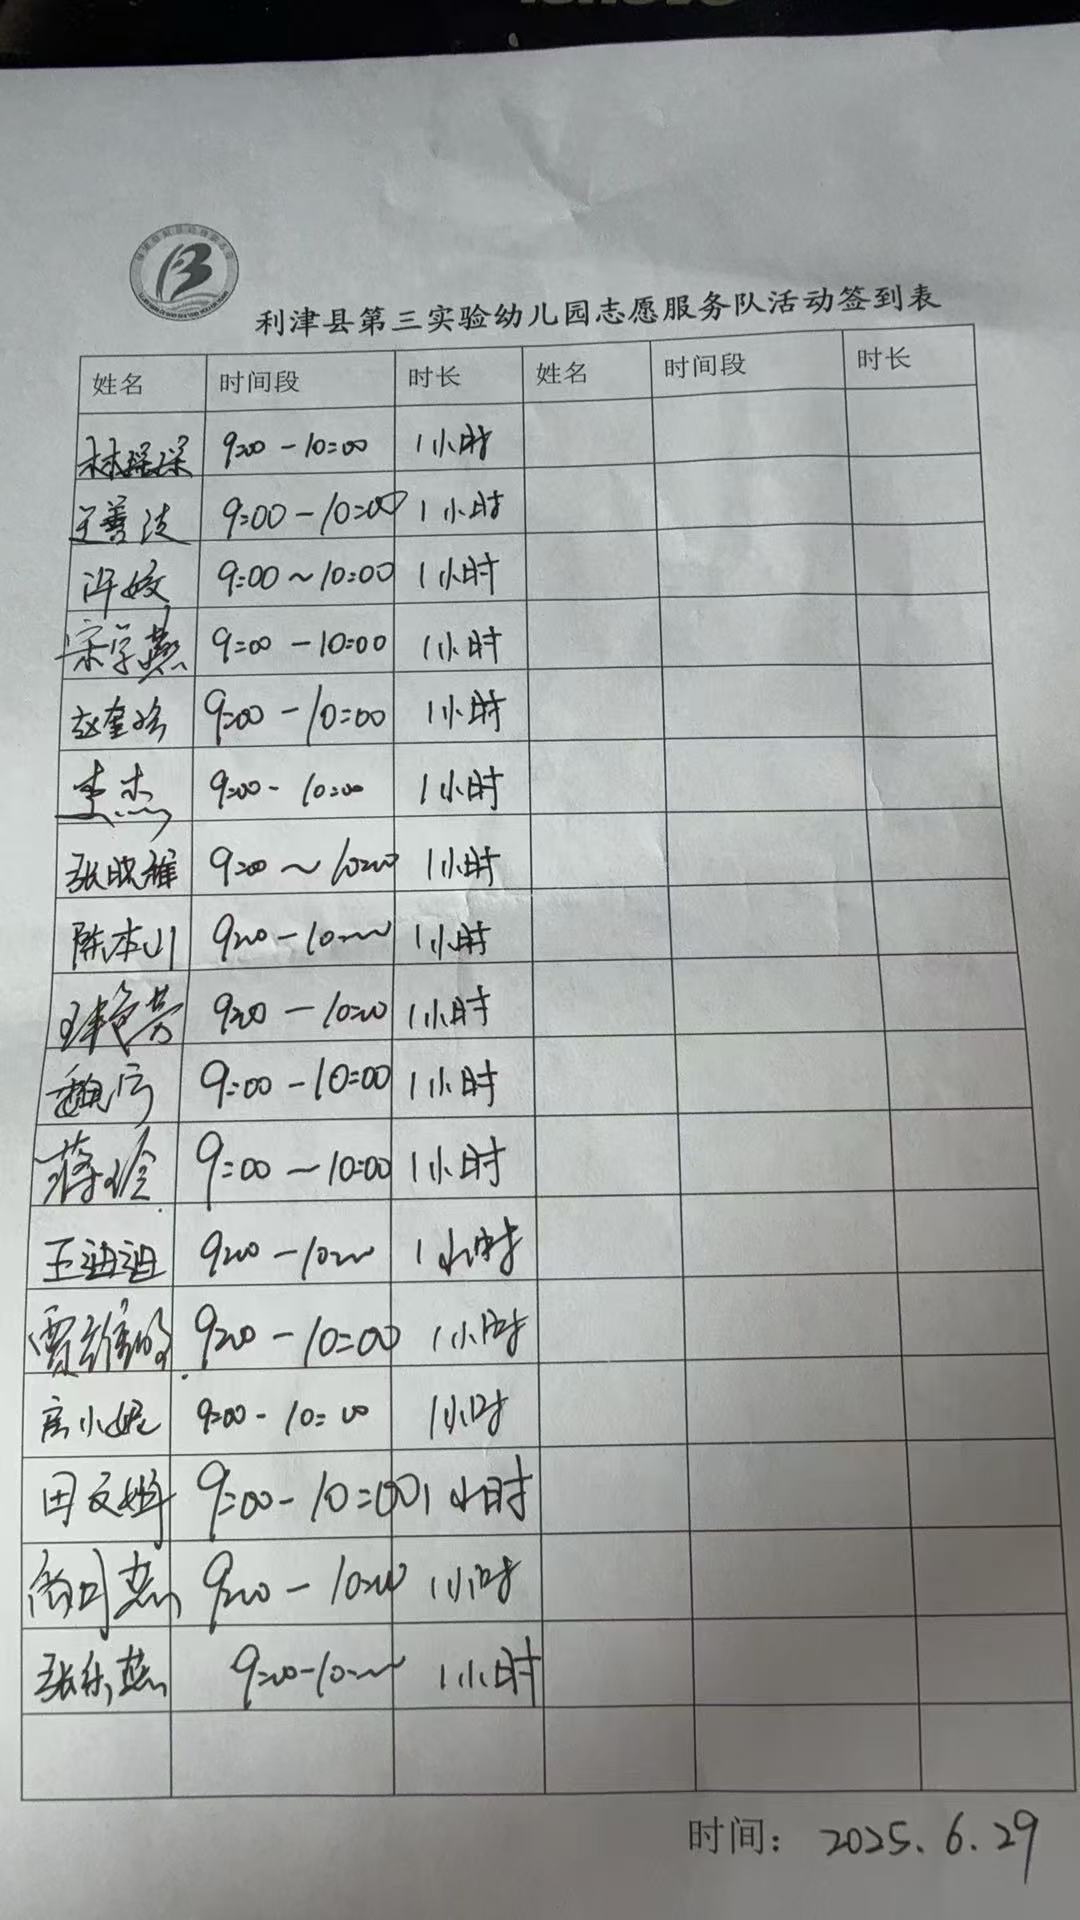 利津县第三实验幼儿园志愿服务队活动签到表
姓名 时间段 时长 姓名 时间段 时长
林探探 9:00-10:00 1小时
王善法 9:00-10:00 1小时
许姣 9:00~10:00 1小时
宋学燕 9:00-10:00 1小时
赵奎 9:00-10:00 1小时
李杰 9:00-10:00 1小时
张晓雅 9:00~10:00 1小时
陈本山 9:00-10:00 1小时
王艳芳 9:00-10:00 1小时
魏 9:00-10:00 1小时
蒋玲 9:00-10:00 1小时
王迪迪 9:00-10:00 1小时
贾 9:00-10:00 1小时
房小妮 9:00-10:00 1小时
田文娟 9:00-10:00 1小时
9:00-10:00 1小时
张乐燕 9:00-10:00 1小时
时间：2025.6.29